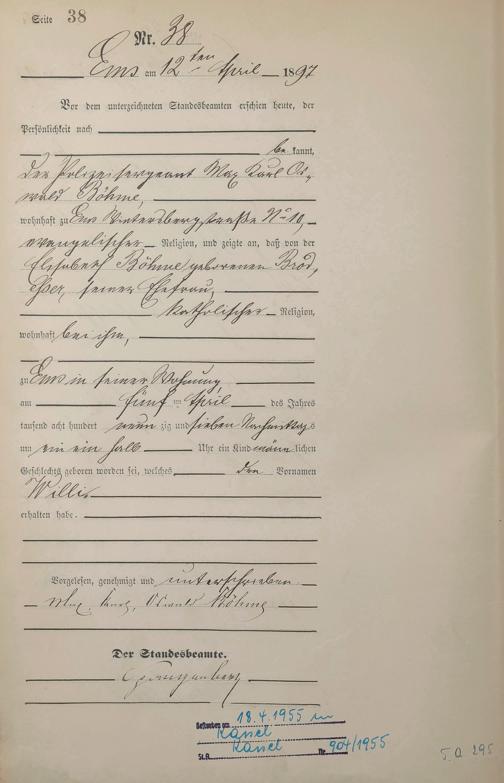 Seite 38
Nr. 38
Ems am 12ten April 1897
Vor dem unterzeichneten Standesbeamten erschien heute, der
Persönlichkeit nach
bekannt,
der Polizeisergeant Max Karl Os-
wald Böhme,
wohnhaft zu Ems Wintersbergstraße No 10,
evangelischer Religion, und zeigte an, daß von der
Elisabeth Böhme geborenen Bröd,
eßer, seiner Ehefrau,
katholischer Religion,
wohnhaft bei ihm,
zu Ems in seiner Wohnung
am fünf ten April des Jahres
tausend acht hundert neun zig und sieben Nachmittags
um ein ein halb Uhr ein Kind männlichen
Geschlechts geboren worden sei, welches den Vornamen
Willi
erhalten habe.
Vorgelesen, genehmigt und unterschrieben
Max. Karl, Oswald Böhme
Der Standesbeamte.
Gestorben am 18.4.1955 in
Kassel
St.A. Kassel Nr. 904/1955